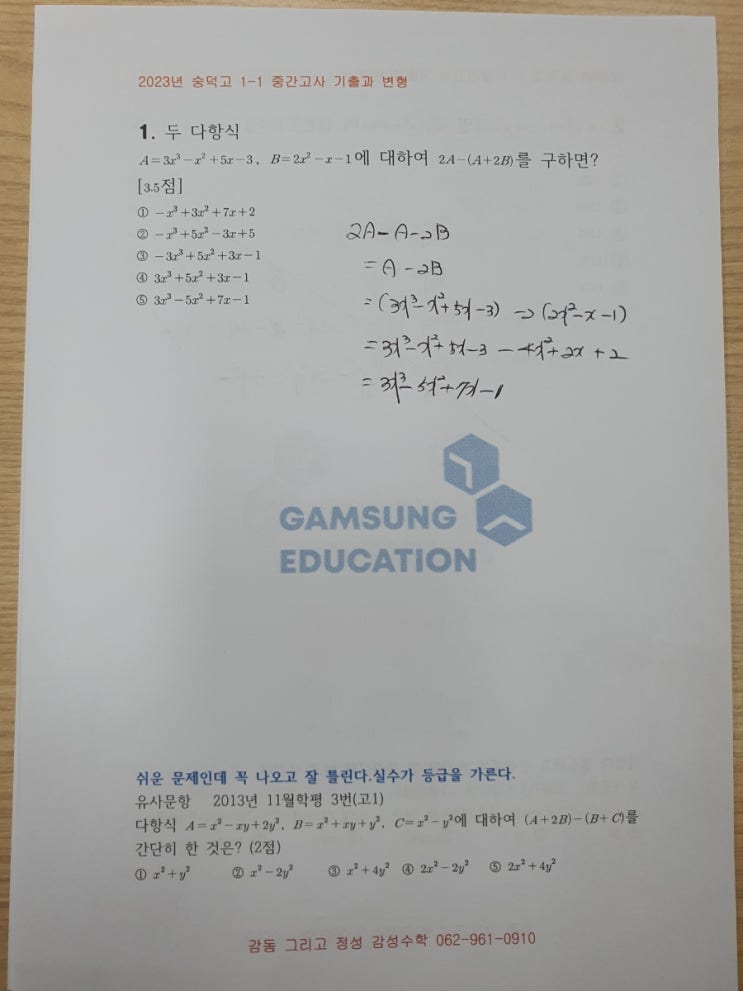 2023년 숭덕고 1-1 중간고사 기출과 변형
1. 두 다항식
A=3x³-x²+5x-3, B=2x²-x-1에 대하여 2A-(A+2B)를 구하면?
[3.5점]
① -x³+3x²+7x+2
② -x³+5x²-3x+5
③ -3x³+5x²+3x-1
④ 3x³+5x²+3x-1
⑤ 3x³-5x²+7x-1
2A-A-2B
=A-2B
=(3x³-x²+5x-3) -2(2x²-x-1)
=3x³-x²+5x-3 -4x²+2x+2
=3x³-5x²+7x-1
GAMSUNG
EDUCATION
쉬운 문제인데 꼭 나오고 잘 틀린다.실수가 등급을 가른다.
유사문항 2013년 11월학평 3번(고1)
다항식 A=x²-xy+2y², B=x²+xy+y², C=x²-y²에 대하여 (A+2B)-(B+C)를
간단히 한 것은? (2점)
① x²+y² ② x²-2y² ③ x²+4y² ④ 2x²-2y² ⑤ 2x²+4y²
감동 그리고 정성 감성수학 062-961-0910